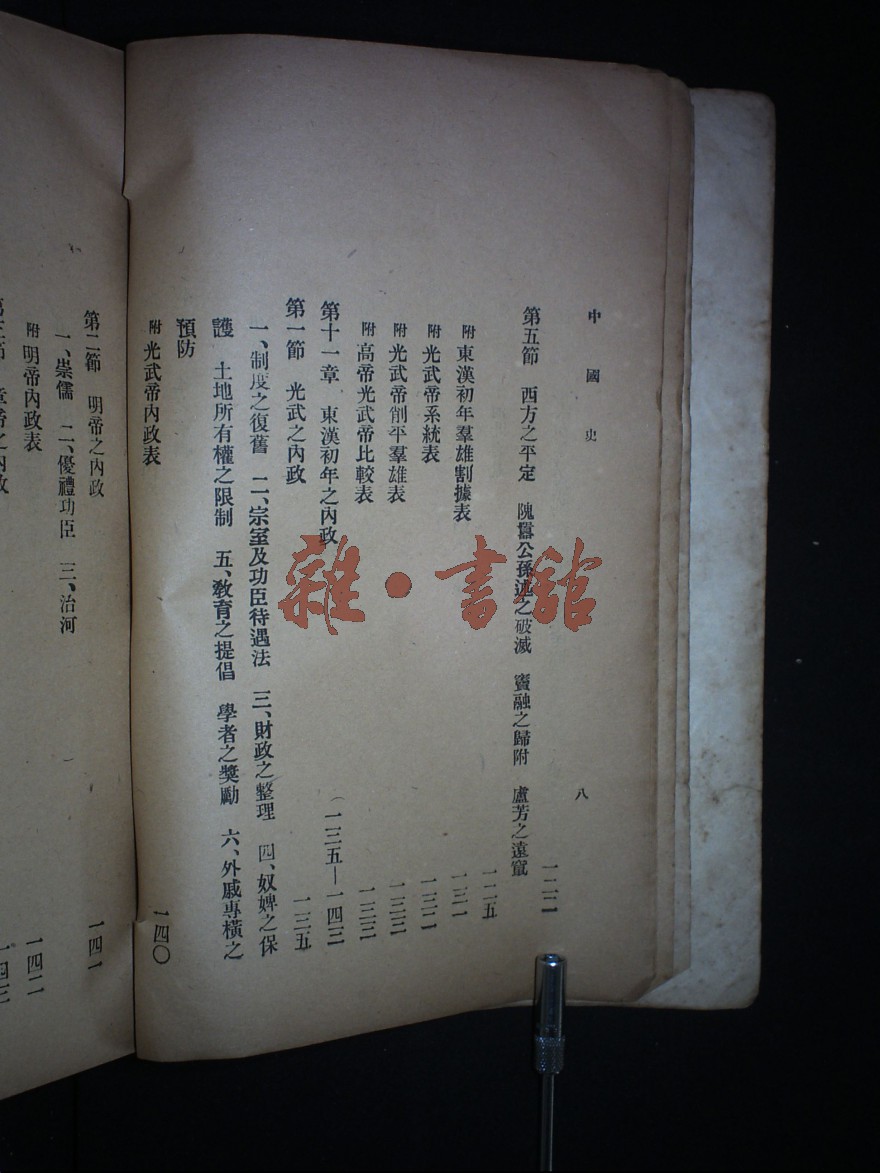 中國史 八
第五節 西方之平定 隗囂公孫述之破滅 竇融之歸附 盧芳之遠竄 一二二
附 東漢初年羣雄割據表 一二五
附 光武帝系統表 一三一
附 光武帝削平羣雄表 一三二
附 高帝光武帝比較表 一三三
第十一章 東漢初年之內政 (一三五—一四三
第一節 光武之內政 一三五
一、制度之復舊 二、宗室及功臣待遇法 三、財政之整理 四、奴婢之保
護 土地所有權之限制 五、教育之提倡 學者之獎勵 六、外戚專橫之
預防
附 光武帝內政表 一四〇
第二節 明帝之內政 一四一
一、崇儒 二、優禮功臣 三、治河
附 明帝內政表 一四二
章帝之內政
雜·書館